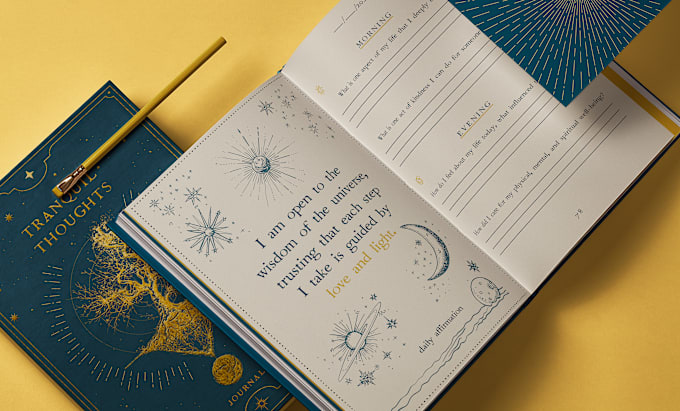 TRANQUIL
THOUGHTS
JOURNAL
I am open to the
wisdom of the universe,
trusting that each step
I take is guided by
love and light.
daily affirmation
MORNING
What is one aspect of my life that I deeply
What is one act of kindness I can do for someone
EVENING
How do I feel about my life today, what influenced
How did I care for my physical, mental, and spiritual well-being?
78